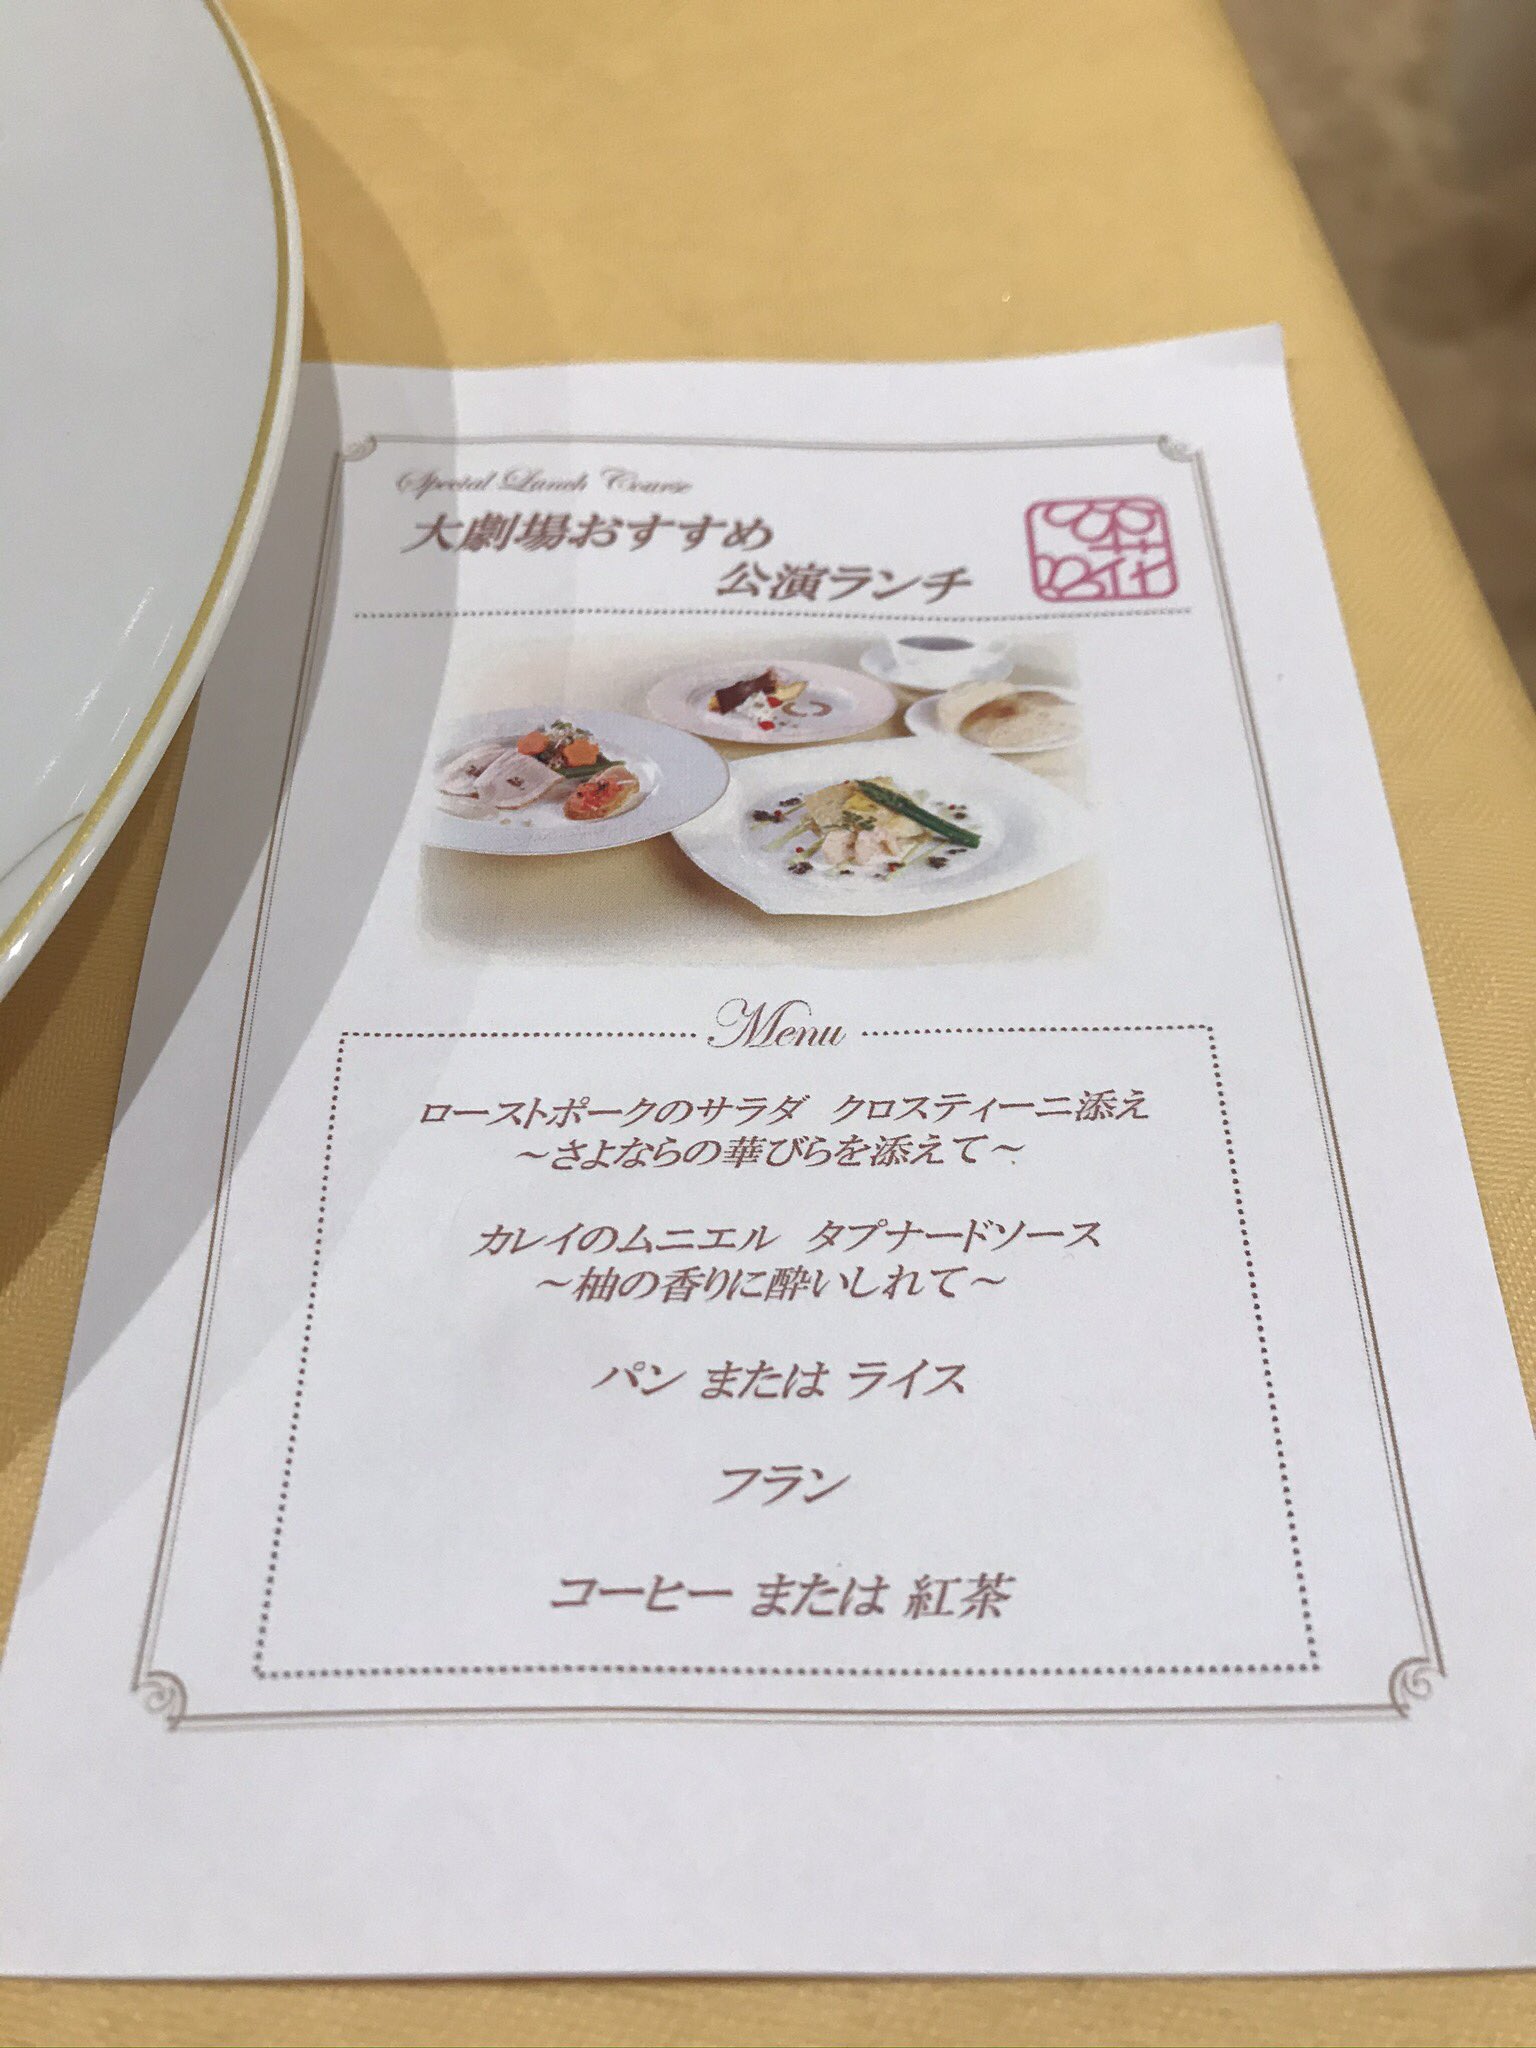 Special Lunch Course
大劇場おすすめ
公演ランチ
Menu
ローストポークのサラダ クロスティーニ添え
～さよならの華びらを添えて～
カレイのムニエル タプナードソース
～柚の香りに酔いしれて～
パン または ライス
フラン
コーヒー または 紅茶